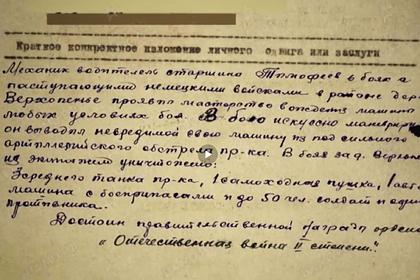 Краткое конкретное изложение личного подвига или заслуги
Механик водитель старшина Тимофеев в боях с
наступающими немецкими войсками в районе дер.
Верхопенье проявил мастерство вождения машины
любых условиях боя. В бою искусно маневрируя
он выводил невредимой свою машину из под сильного
артиллерийского обстрела пр-ка. В боях за д. Верхопе
экипажем уничтожено:
3 средних танка пр-ка, 1 самоходная пушка, 1 авто
машина с боеприпасами и до 50 чел. солдат и офиц
противника.
Достоин правительственной награды орден
„Отечественная война II степени".